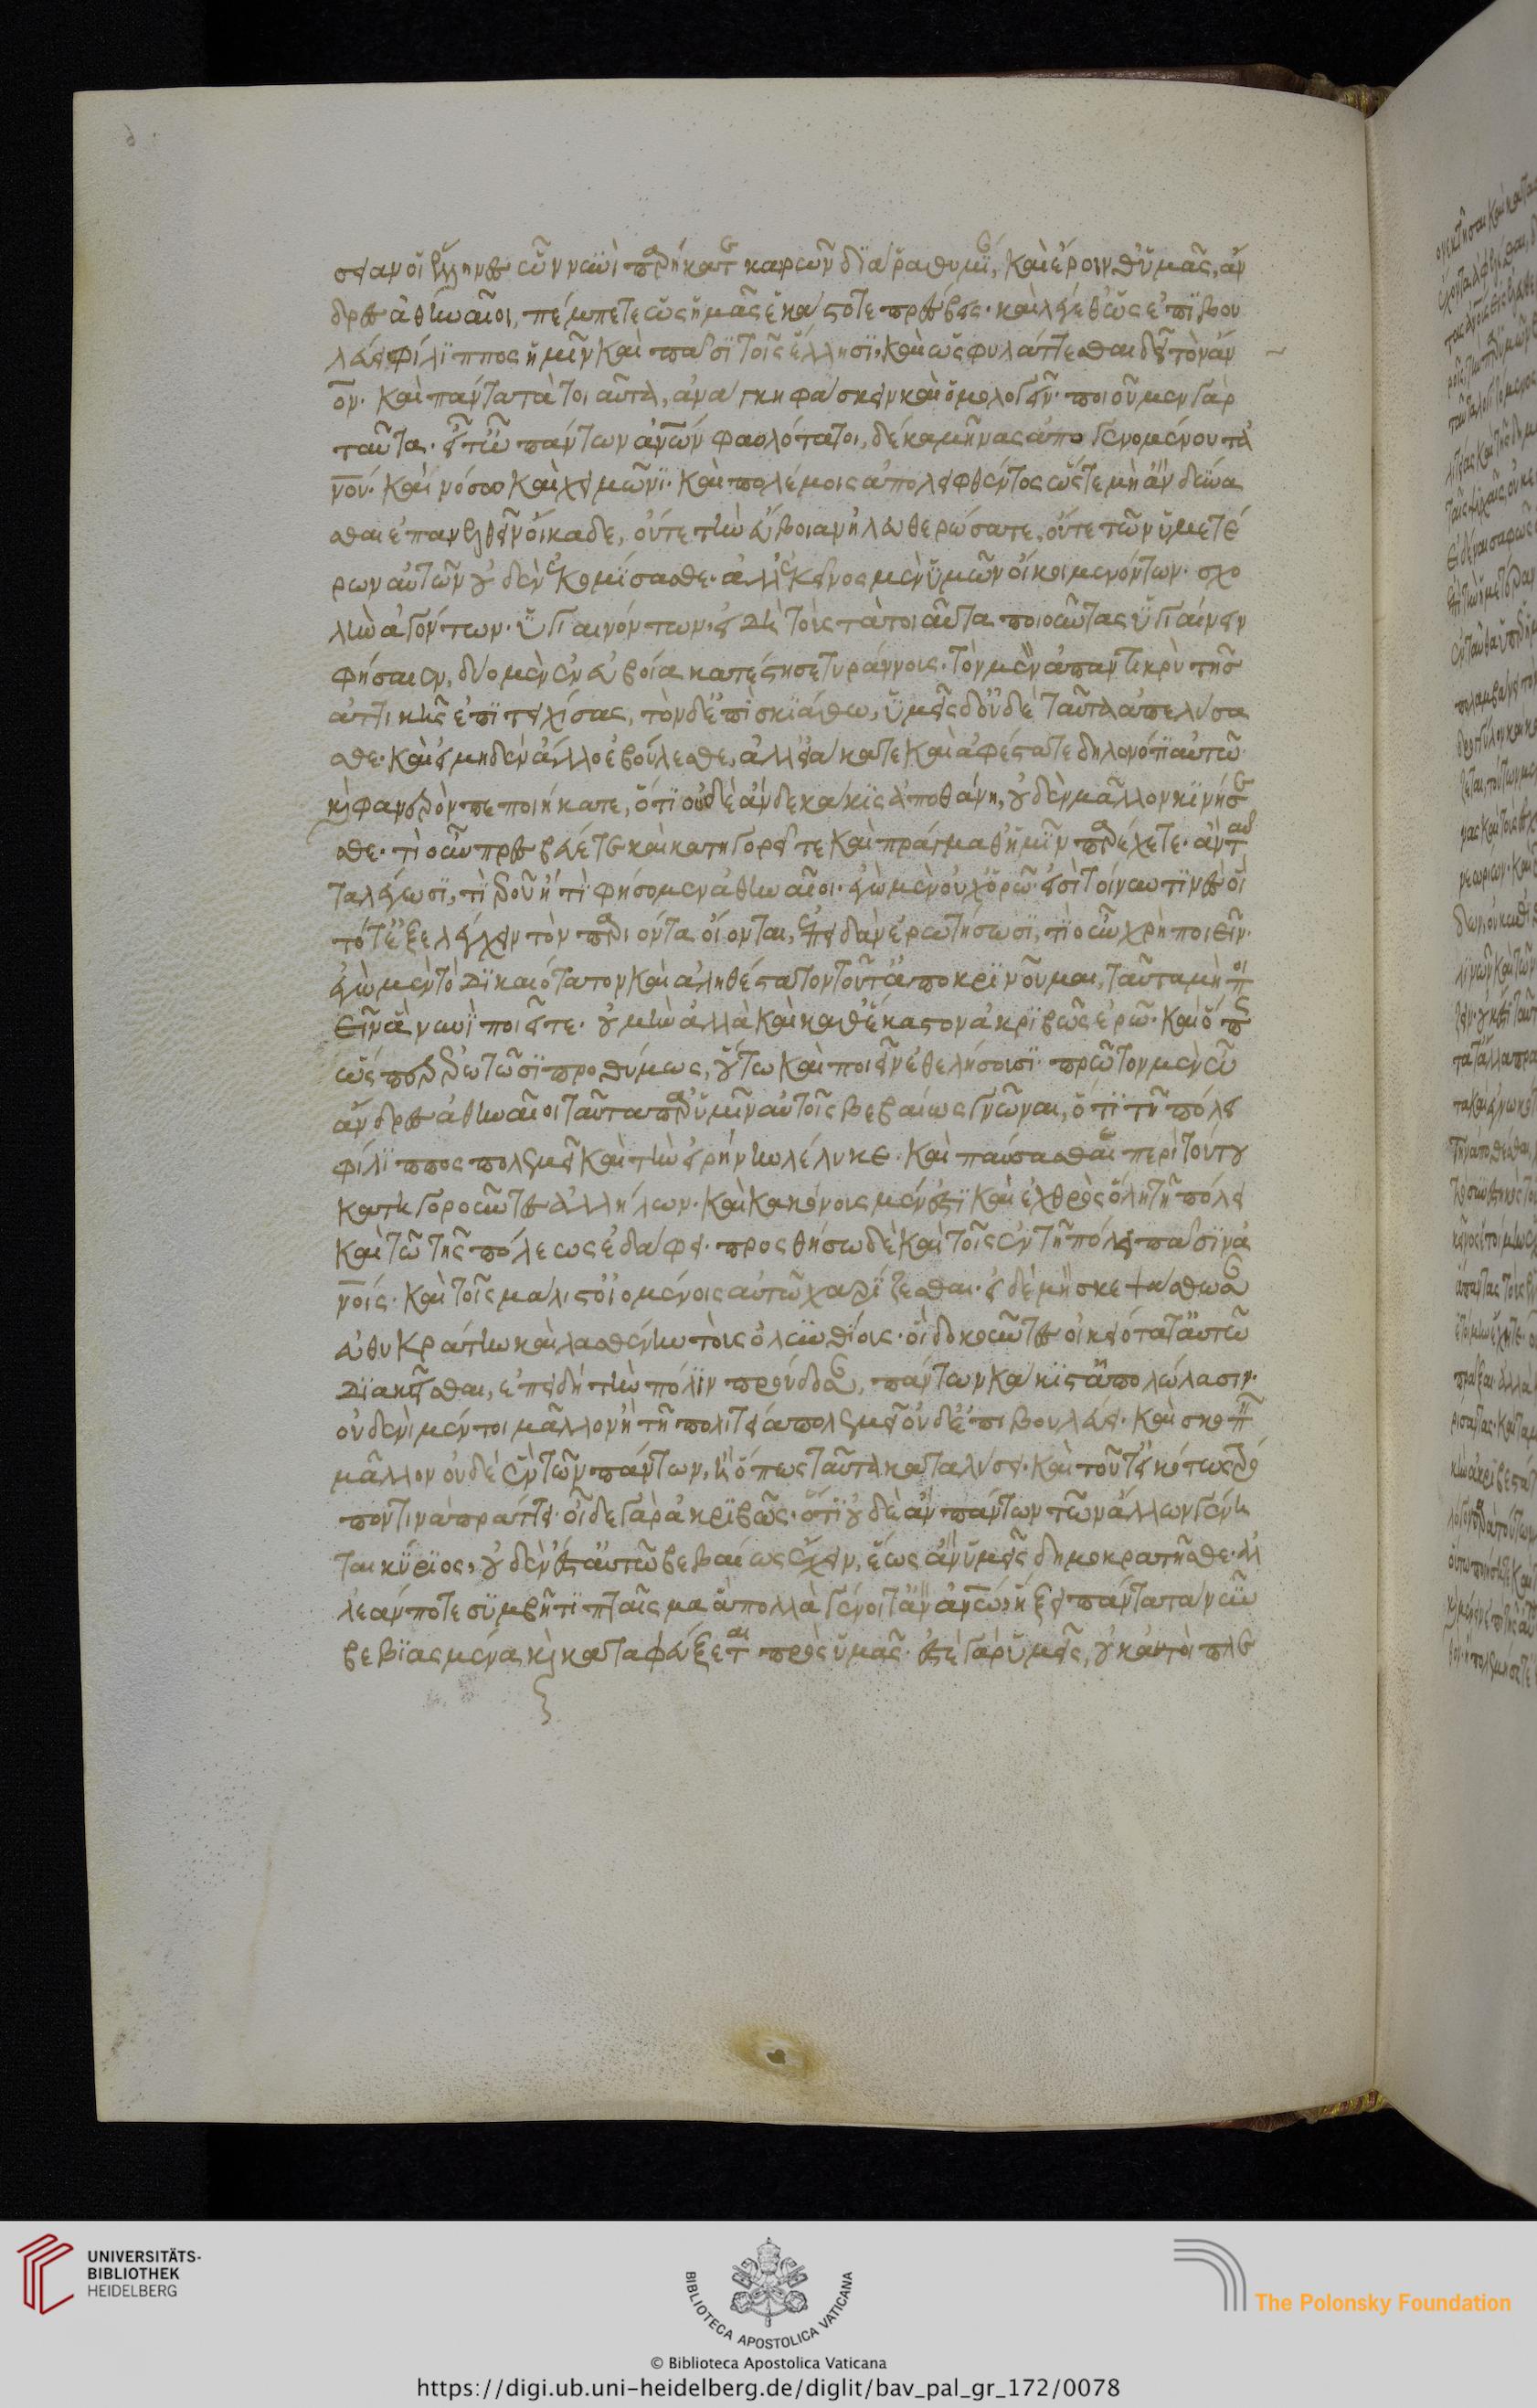 σειαν οἱ Ἕλληνες ὧν νυνὶ παρήκατε καιρῶν διὰ ῥαθυμίαν, καὶ ἔροινθ' ὑμᾶς, ἄν
δρες ἀθηναῖοι, πέμπετε ὡς ἡμᾶς ἑκάστοτε πρέσβεις· καὶ λέγεθ' ὡς ἐπιβου
λεύει φίλιππος ἡμῖν καὶ πᾶσι τοῖς ἕλλησι, καὶ ὡς φυλάττεσθαι δεῖ τὸν ἄν
ον· καὶ πάντα τὰ τοιαῦτα, ἀνάγκη φάσκειν καὶ ὁμολογεῖν· ποιοῦμεν γὰρ
ταῦτα· εἶτ' ὦ πάντων ἀνων φαυλότατοι, δέκα μῆνας ἀπογενομένου τἀ
νου· καὶ νόσω καὶ χειμῶνι· καὶ πολέμοις ἀπολειφθέντος ὥστε μὴ ἂν δύνα
σθαι ἐπανελθεῖν οἴκαδε, οὔτε τὴν εὔβοιαν ἠλευθερώσατε, οὔτε τῶν ὑμετέ
ρων αὐτῶν οὐδὲν ἐκομίσασθε· ἀλλ' ἐκεῖνος μὲν ὑμῶν οἴκοι μενόντων· σχο
λὴν ἀγόντων· ὑγιαινόντων· εἰ δὴ τοὺς τὰ τοιαῦτα ποιοῦντας ὑγιαίνειν
φήσαιεν, δύο μὲν ἐν εὐβοία κατέστησε τυράννους· τὸν μὲν ἀπαντικρὺ τῆς
ἀττικῆς ἐπιτειχίσας, τὸν δ' ἐπὶ σκιάθω, ὑμεῖς δ' οὐδὲ ταῦτα ἀπελύσα
σθε· καὶ εἰ μηδὲν ἄλλο ἐβούλεσθε, ἀλλ' εἰάκατε καὶ ἀφέστατε δηλονότι αὐτῶ
καὶ φανερὸν πεποιήκατε, ὅτι οὐδὲ ἂν δεκάκις ἀποθάνη, οὐδὲν μᾶλλον κινήσε
σθε· τί οὖν πρεσβεύετε καὶ κατηγορεῖτε καὶ πράγμαθ' ἡμῖν παρέχετε· ἂν ταῦ
τα λέγωσι, τί ἐροῦμεν ἢ τί φήσομεν ἀθηναῖοι· ἐγὼ μὲν οὐχ ὁρῶ· εἰσὶ τοίνυν τινὲς οἳ
τότ' ἐξελέγχειν τὸν παριόντα οἴονται, ἐπειδὰν ἐρωτήσωσι, τί οὖν χρὴ ποιεῖν·
ἐγὼ μὲν τὸ δικαιότατον καὶ ἀληθέστατον τοῦτ' ἀποκρινοῦμαι, ταῦτα μὴ ποι
εῖν ἃ νυνὶ ποιεῖτε· οὐ μὴν ἀλλὰ καὶ καθ' ἕκαστον ἀκριβῶς ἐρῶ· καὶ ὅπως
ὡς περ ἐρωτῶσι προθύμως, οὕτω καὶ ποιεῖν ἐθελήσουσι· πρῶτον μὲν ὦ
ἄνδρες ἀθηναῖοι ταῦτα παρ' ὑμῖν αὐτοῖς βεβαίως γνῶναι, ὅτι τῆ πόλει
φίλιππος πολεμεῖ καὶ τὴν εἰρήνην λέλυκε· καὶ παύσασθαι περὶ τούτου
κατηγοροῦντες ἀλλήλων· καὶ κακόνους μέν ἐστι καὶ ἐχθρὸς ὅλη τῆ πόλει
καὶ τῶ τῆς πόλεως ἐδάφει· προσθήσω δὲ καὶ τοῖς ἐν τῆ πόλει πᾶσιν ἀ
νοις· καὶ τοῖς μάλιστ' οἰομένοις αὐτῶ χαρίζεσθαι· εἰ δὲ μὴ σκεψάσθων
εὐθυκράτην καὶ λασθένην τοὺς ὀλυνθίους· οἳ δοκοῦντες οἰκειότατ' αὐτῶ
διακεῖσθαι, ἐπειδὴ τὴν πόλιν προὔδοσαν, πάντων κάκιστ' ἀπολώλασιν·
οὐδενὶ μέντοι μᾶλλον ἢ τῆ πολιτεία πολεμεῖ οὐδ' ἐπιβουλεύει· καὶ σκοπεῖ
μᾶλλον οὐδὲ ἓν τῶν πάντων, ἢ ὅπως ταῦτα καταλύσει· καὶ τοῦτ' εἰκότως τρό
πον τινὰ πράττει· οἶδε γὰρ ἀκριβῶς· ὅτι οὐδ' ἂν πάντων τῶν ἄλλων γένη
ται κύριος, οὐδὲν ἔστ' αὐτῶ βεβαίως ἔχειν, ἕως ἂν ὑμεῖς δημοκρατῆσθε· ἀλ
λ' ἐάν ποτε συμβῆ τι πταῖσμα ἃ πολλὰ γένοιτ' ἂν ἀνω, ἥξει πάντα τὰ νῦν
βεβιασμένα καὶ καταφεύξεται πρὸς ὑμᾶς· ἐστὲ γὰρ ὑμεῖς, οὐκ αὐτοὶ πλε
UNIVERSITÄTS-
BIBLIOTHEK
HEIDELBERG
BIBLIOTECA APOSTOLICA VATICANA
The Polonsky Foundation
© Biblioteca Apostolica Vaticana
https://digi.ub.uni-heidelberg.de/diglit/bav_pal_gr_172/0078